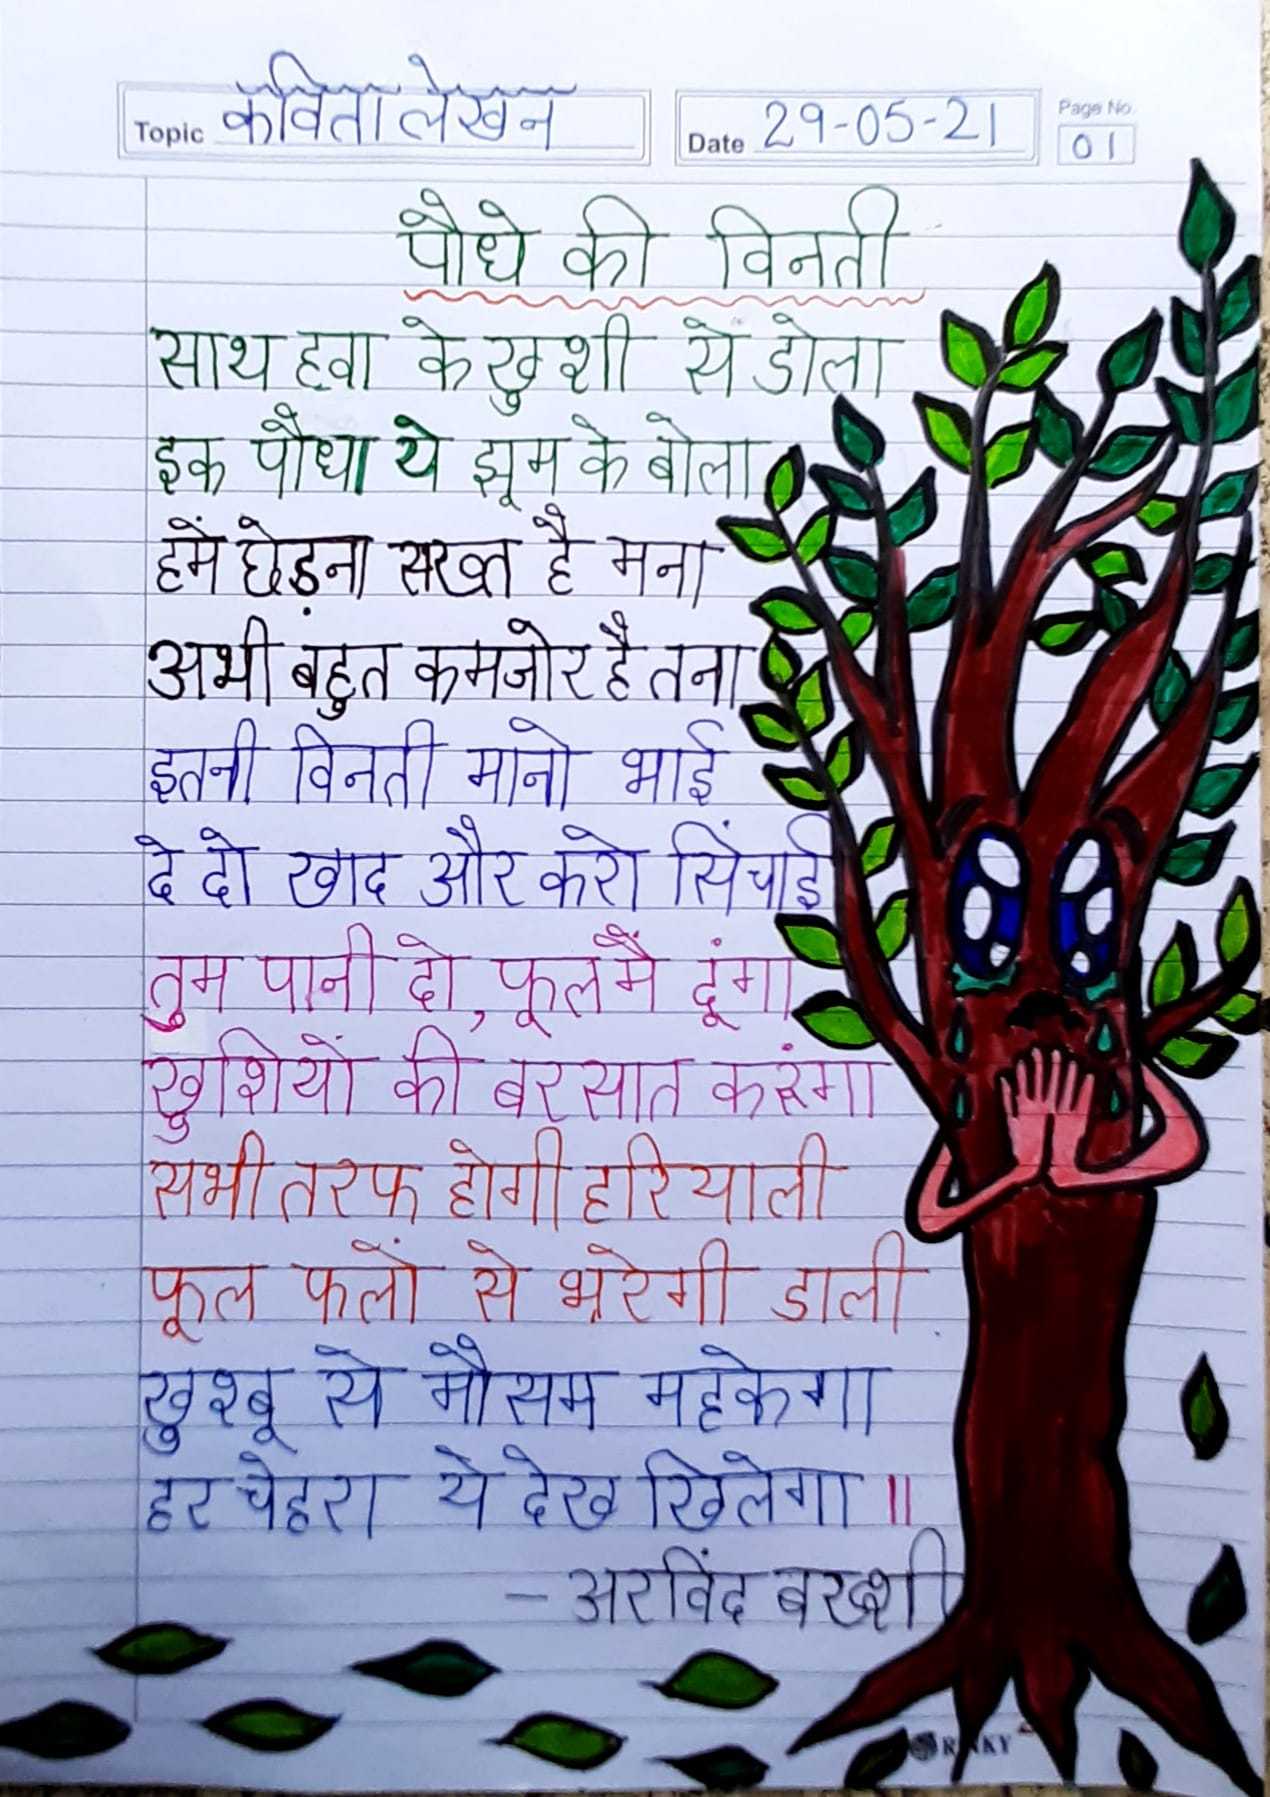 Topic कविता लेखन
Date 29-05-21
Page No.
01
पौधे की विनती
साथ हवा के खुशी से डोला
इक पौधा ये झूम के बोला
हमें छेड़ना सख्त है मना
अभी बहुत कमजोर है तना
इतनी विनती मानो भाई
दे दो खाद और करो सिंचाई
तुम पानी दो, फूल मैं दूंगा
खुशियों की बरसात करूंगा
सभी तरफ होगी हरियाली
फूल फलों से भरेगी डाली
खुश्बू से मौसम महकेगा
हर चेहरा ये देख खिलेगा ॥
- अरविंद बख्शी